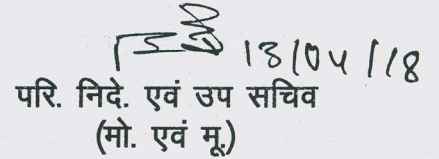 13/04/18
परि. निदे. एवं उप सचिव
(मो. एवं मू.)